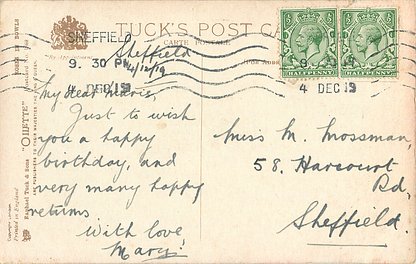 TUCK'S POST CA
CARTE POSTALE
SHEFFIELD
9. 30 PM
4 DEC 19
4 DEC 19
HALFPENNY
HALFPENNY
Sheffield
4/12/19
My dear Marie,
Just to wish
you a happy
birthday, and
very many happy
returns
With love
Mary.
Miss M. Mossman,
58. Harcourt
Rd,
Sheffield.
"OILETTE"
Raphael Tuck & Sons
Printed in England